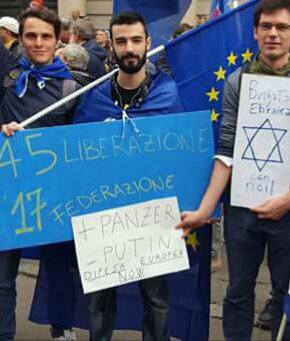 45 LIBERAZIONE
'17 FEDERAZIONE
+ PANZER
- PUTIN
DIFESA EUROPEA
NOW
Brigata
Ebraica
con
noi!